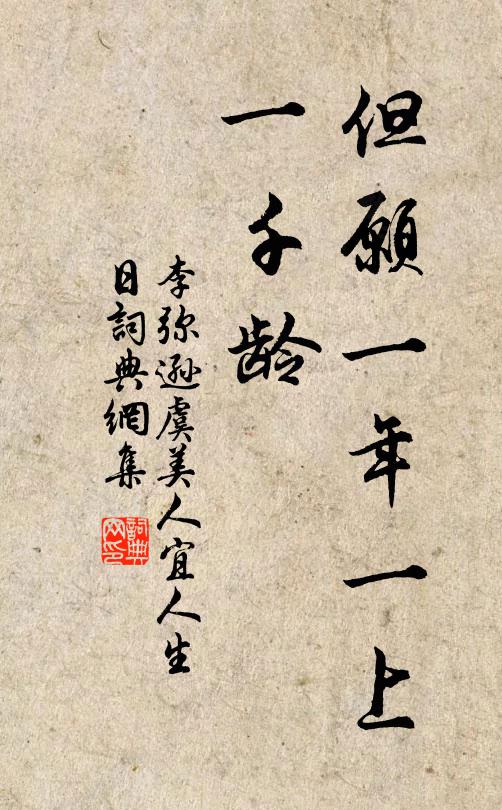 但願一年一上
一千龄
李弥遜虞美人宜人生
日詞典網集
詞典网印